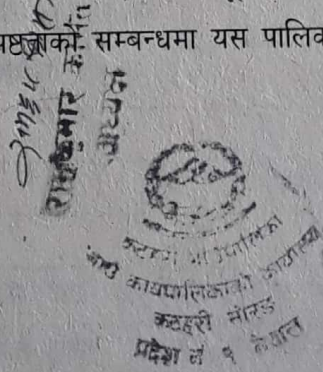 सम्बन्धमा यस पालिक
राजकुमार
अध्यक्ष
कटहरी गाउँपालिका
गाउँ कार्यपालिकाको कार्यालय
कटहरी मोरङ
प्रदेश नं १ नेपाल